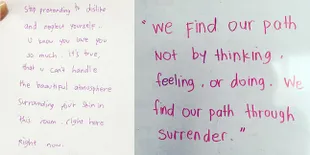 Stop pretending to dislike
and neglect yourself.
U know you love you
so much. it's true,
that u can't handle
the beautiful atmosphere
surrounding your skin in
this room. right here
right now.
"We find our path
not by thinking,
feeling, or doing. We
find our path through
surrender."